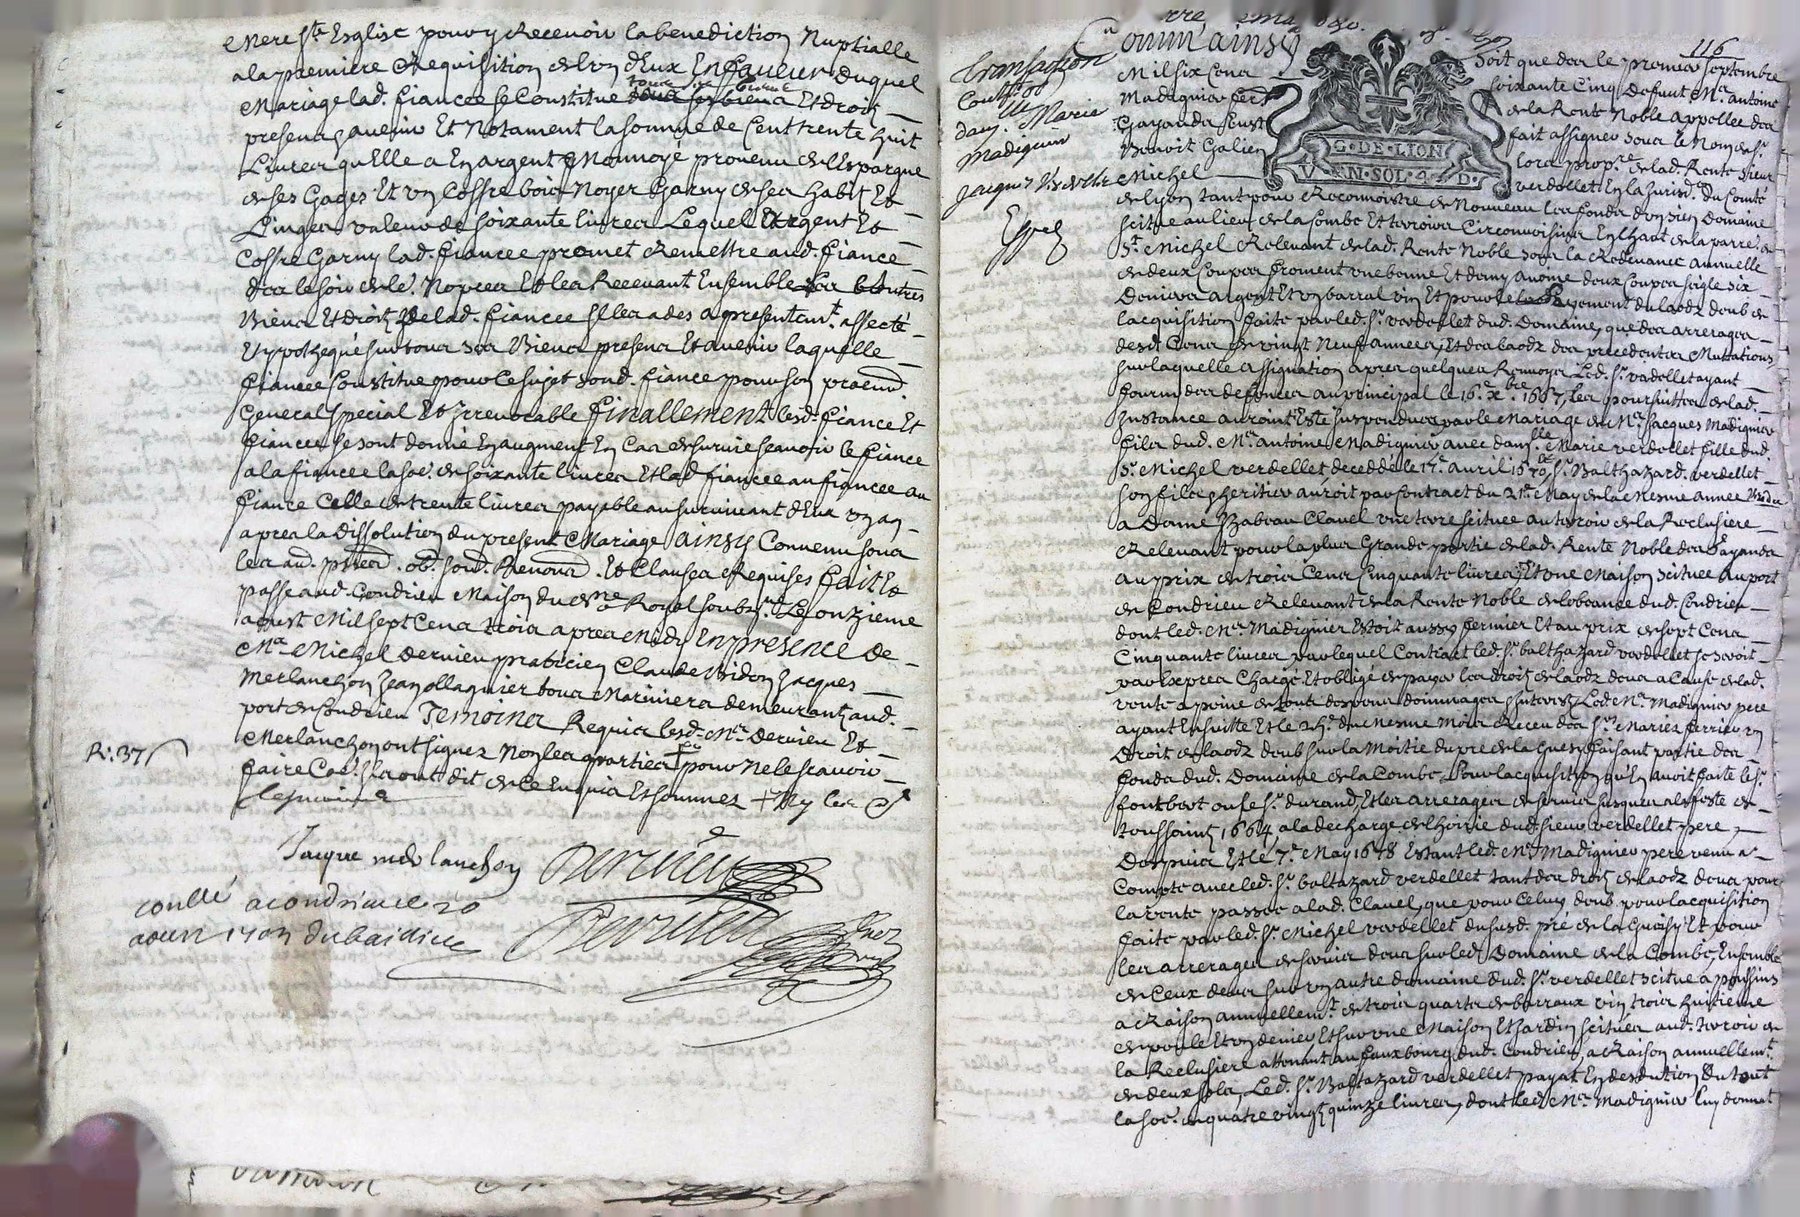 Mere Ste Esglise pour y Recevoir la benediction Nuptialle
a la premiere Requisition de l'un d'Eux En faveur duquel
Mariage lad. fiancee se Constitue tous ses biens Et droits
presens & avenir Et Notament la somme de Cent trente huit
Livres qu'Elle a En argent Monnoyé provenu de l'Espargne
de ses Gages Et un Coffre bois Noyer Garny de ses habits Et
Linges valeur de soixante livres Lequel Argent Et
Coffre Garny lad. fiancee promet Remettre aud. fiance
des le soir de le. Nopces Et les Recevant Ensemble les autres
Biens Et droits de lad. fiancee Il les a des a present affecté
Et ypothequé sur tous ses Biens presens Et avenir laquelle
fiancee Constitue pour Ce sujet sond. fiance pour son procur.
General special Et Irrevocable finallement lesd. fiance Et
fiancee se sont donné En augment En Cas de survie scavoir le fiance
a la fiancee la soe. de soixante livres Et lad. fiancee au fiancee au
fiance Celle de trente livres payable au survivant d'Eux un an
apres la dissolution du present Mariage ainsy Convenu sous
les aud. pnes. ob. soub. Renon. Et Clauses Requises fait Et
passe aud. Condrieu Maison du Nre Royal soubzsné. Le onzieme
aoust Mil sept Cens trois apres Midy En presence de
Mre Michel Dervieu praticien Claude Bidon Jacques
Merlanchon Jean ollagnier tous Mariniers demeurant aud.
port de Condrieu Temoins Requis lesd. Mre Dervieu Et
Merlanchon ont signez Non les parties pour Ne le scavoir
faire Coe. Ils ont dit de Ce Enquis Et sommez + Ny les
R: 37
Jaque merlanchon Dervieu
conllé a condrieu le 20
aoust 1703 Dubaidieu
Dervieu
116
Comm'ainsy
G·DE·LION
V·N·SOL·4·D·
Transaction
Coutre
dam. lle Marie
Madiguier
Jacques Verdellet
Exped
soit que des le premier septembre
Mil six Cens soixante Cinq Defunt Me. antoine
Madiguier fer de la Rente Noble appellee des
Gayands fait assigner sous le Nom de sr.
Benoit Galien lors propre. de lad. Rente sieur
Michel verdellet En la Jurisd. du Comté
de Lyon tant pour Reconnoistre de Nouveau les fonds d'un sien Domaine
scitué au lieu de la Combe Et terroirs Circonvoisins En l'haut de la parre. de
St. Michel Relevant de lad. Rente Noble sous la Redevance annuelle
de deux Coupes froment une benne Et demy avoine deux Coupes seigle six
Deniers argent Et un barral vin Et pour le payement du laodz deub de
lacquisition faite par led. sr. verdellet dud. Domaine, que des arrerages
desd. Cens de vingt Neuf annees, Et des laodz des precedentes Mutations
sur laquelle assignation apres quelques Renvoyes Led. sr. verdellet ayant
fourni des defences au principal le 16e. xbre. 1667, les poursuittes de lad.
Instance auroint Este suspendues par le Mariage de Me. Jacques Madiguier
fils dud. Me. antoine Madiguier avec damlle. Marie verdellet fille dud.
Sr. Michel verdellet decedde le 17e. avril 1670, Sr. Balthazard verdellet
son fils & heritier auroit par Contract du 21e. May de la Mesme annee Vendu
a Dame Izabeau Clavel une terre scituee au terroir de la Reclusiere
Relevant pour la plus Grande partie de lad. Rente Noble des Gayands
au prix de trois Cens Cinquante livres, Et une Maison scituee au port
de Condrieu Relevant de la Rente Noble de l'obeance dud. Condrieu
dont led. Me. Madiguier Estoit aussy fermier Et au prix de sept Cens
Cinquante livres par lequel Contract led. sr. balthazard verdellet se seroit
par Expres Chargé Et obligé de payer les droits de laodz deus a Cause de lad.
vente a peine de tous despens dommages Interests, Led. Me. Madiguier pere
ayant Ensuitte Et le 24e. du mesme Mois Receu des Srs. Mariez ferrier un
Droit de laodz deub sur la Moitie du pre de la Guesy faisant partie des
fonds dud. Domaine de la Combe, Pour lacquisition qu'En avoit faite le sr.
fontbert ou le sr. durand, Et les arrerages de servis Jusques a la feste de
toussaint 1664 a la decharge de l'hoirie dud. sieur verdellet pere,
Despuis Et le 7e. May 1678 Estant led. Me. Madiguier pere venu a
Compte avec led. sr. baltazard verdellet tant des droits de laodz deus pour
la vente passee a lad. Clavel, que pour Celuy deub pour lacquisition
faite par led. sr. Michel verdellet du susd. pré de la Guesy Et pour
les arrerages de servis deus sur led. Domaine de la Combe, Ensemble
de Ceux deus sur un autre domaine dud. sr. verdellet scitue a poissins
a Raison annuellemt. de trois quarts de barraux vin trois huitieme
de poule Et un denier Et sur une Maison Et Jardin scituez aud. terroir de
la Reclusiere attenant au fauxbourg dud. Condrieu, a Raison annuellemt.
de deux sols, Led. sr. Baltazard verdellet payat En deduction du tout
la soe. de quatre vingt quinze livres, dont led. Me. Madiguier luy donnat